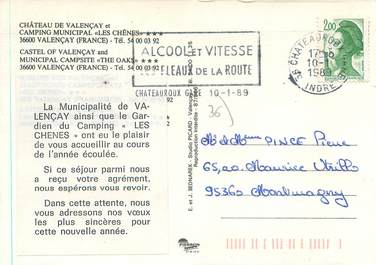 CHÂTEAU DE VALENÇAY et
CAMPING MUNICIPAL «LES CHÊNES» ★★★
36600 VALENÇAY (FRANCE) - Tél. 54 00 03 92
CASTEL OF VALENÇAY and
MUNICIPAL CAMPSITE «THE OAKS» ★★★
36600 VALENÇAY (FRANCE) - Tél. 54
92
La Municipalité de VA-
LENÇAY ainsi que le Gar-
dien du Camping " LES
CHENES " ont eu le plaisir
de vous accueillir au cours
de l'année écoulée.
Si ce séjour parmi nous
a reçu votre agrément,
nous espérons vous revoir.
Dans cette attente, nous
vous adressons nos vœux
les plus sincères pour
cette nouvelle année.
ALCOOL et VITESSE
FLEAUX DE LA ROUTE
CHATEAUROUX GARE 10-1-89
2,00
10-1
1989
INDRE
36
E. et J. BEDNAREK - Studio PICARD - Valençay
Reproduction interdite
PINCE Pierre
65, Maurice Utrillo
95360 Montmagny